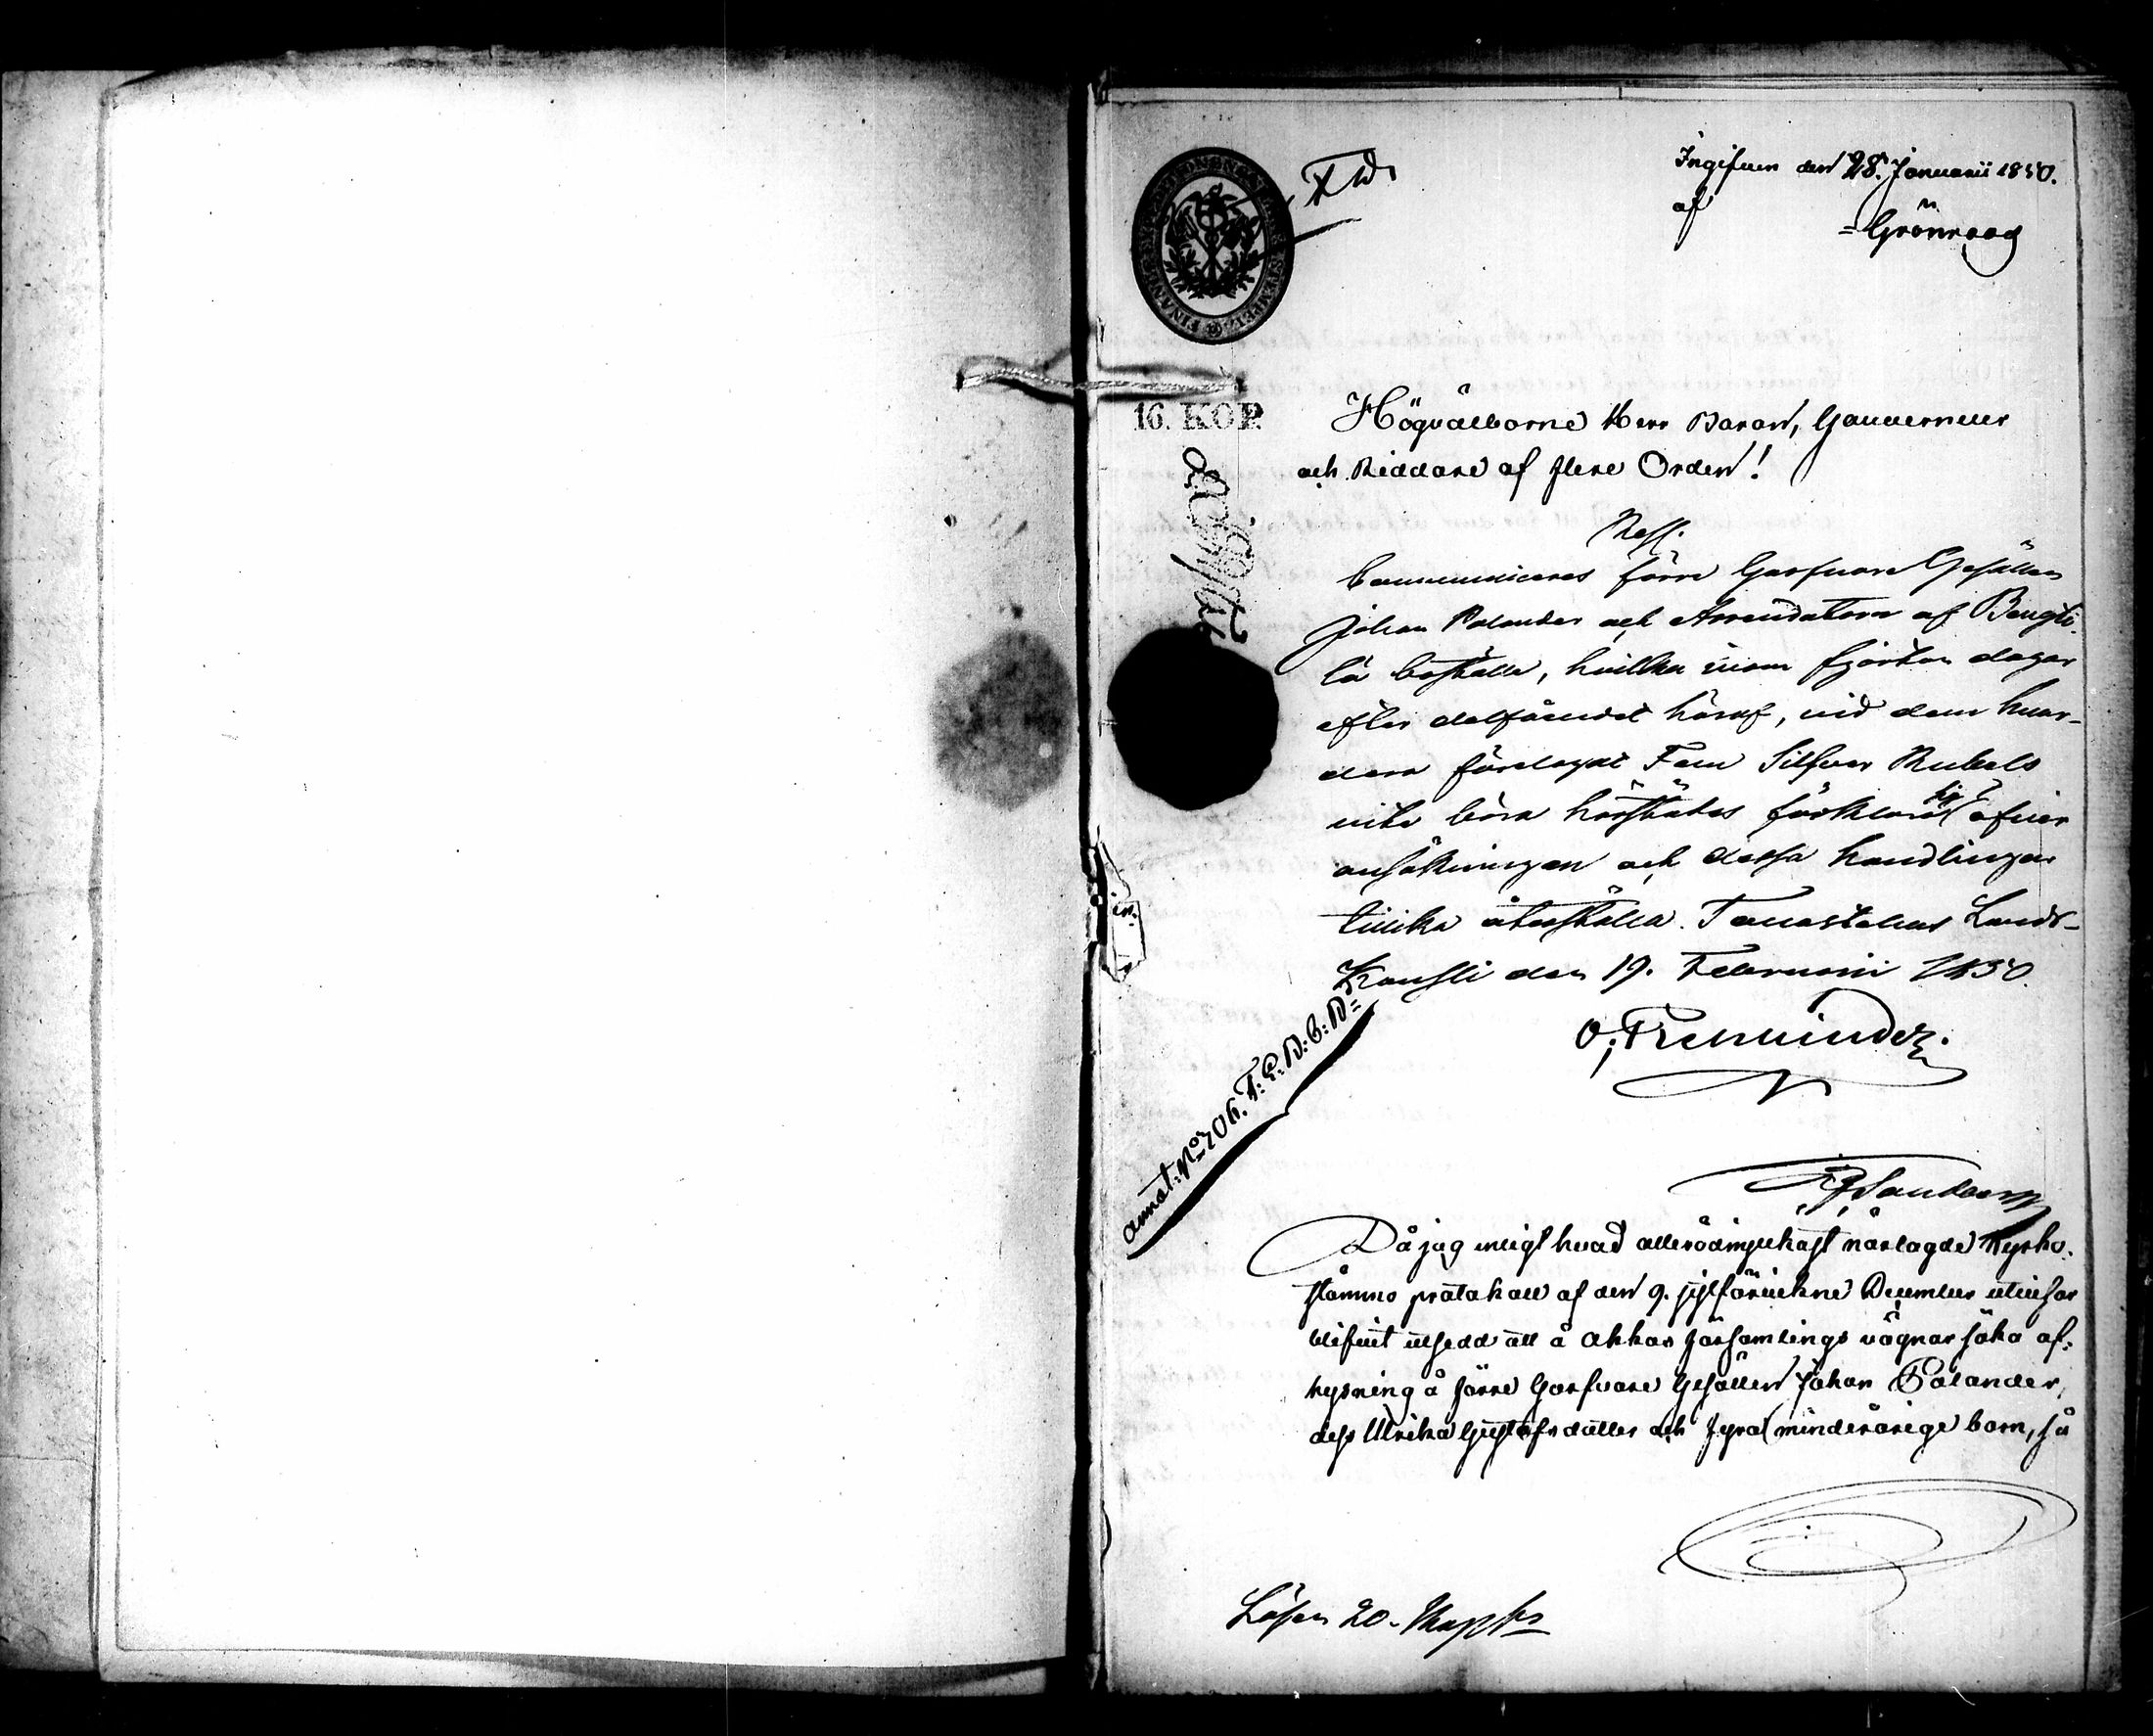 Ingifven den 28. Januarii 1850.
af
Grönroog
16. KOP.
Högvälborne Herr Baron, Gouverneur
och Riddare af flere Orden!
Resl.
Communiceras förre Garfvare Gesällen
Johan Palander och Arrendatorn af Bengti-
lä boställe, hvilka inom fjorton dagar
efter delfåendet häraf, vid dem hvar-
dera förelagdt Fem Silfver Rubels
vite böra härstädes förklara sig öfver
ansökningen och dessa handlingar
tillika återställa. Tavastehus Lands-
Kansli den 19. Februarii 1850.
annot: No 706. T: L: D: C: D:
Då jag enligt hvad allerödmjukast närlagde Kyrko-
stämmo protokoll af den 9. sistförvikne December utvisar
blifvit utsedd att å Akkas församlings vägnar söka af-
hysning å förre Garfvare Gesällen Johan Palander,
dess Ulrika Gustafsdotter och fyra minderårige barn, så
Lösen 20. Kop Sr